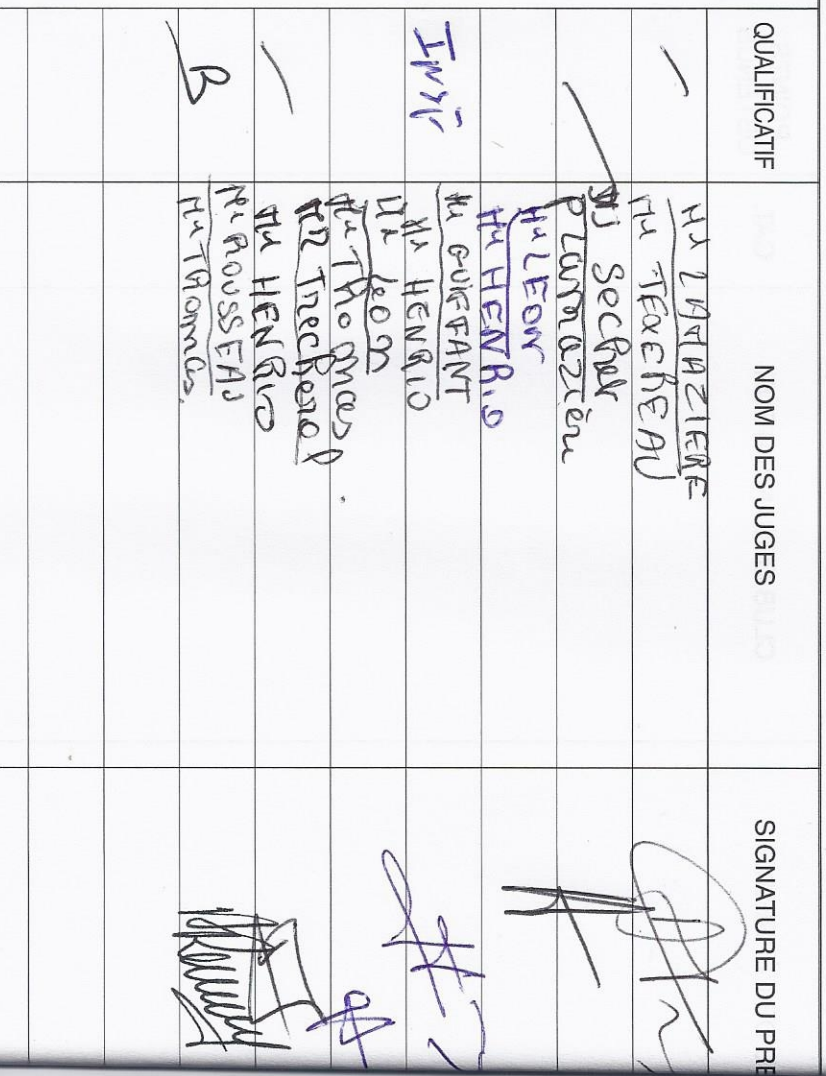 QUALIFICATIF NOM DES JUGES SIGNATURE DU PRE
Mr LAMAZIERE
Mr TEXEREAU
DJ Secher
Mr LEON
Mr HENRIO
Insf
Mr GUIFFANT
Mr HENRIO
Mr Leon
Mr Thomas
Mr HENRIO
B
Mr ROUSSEAU
Mr Thomas